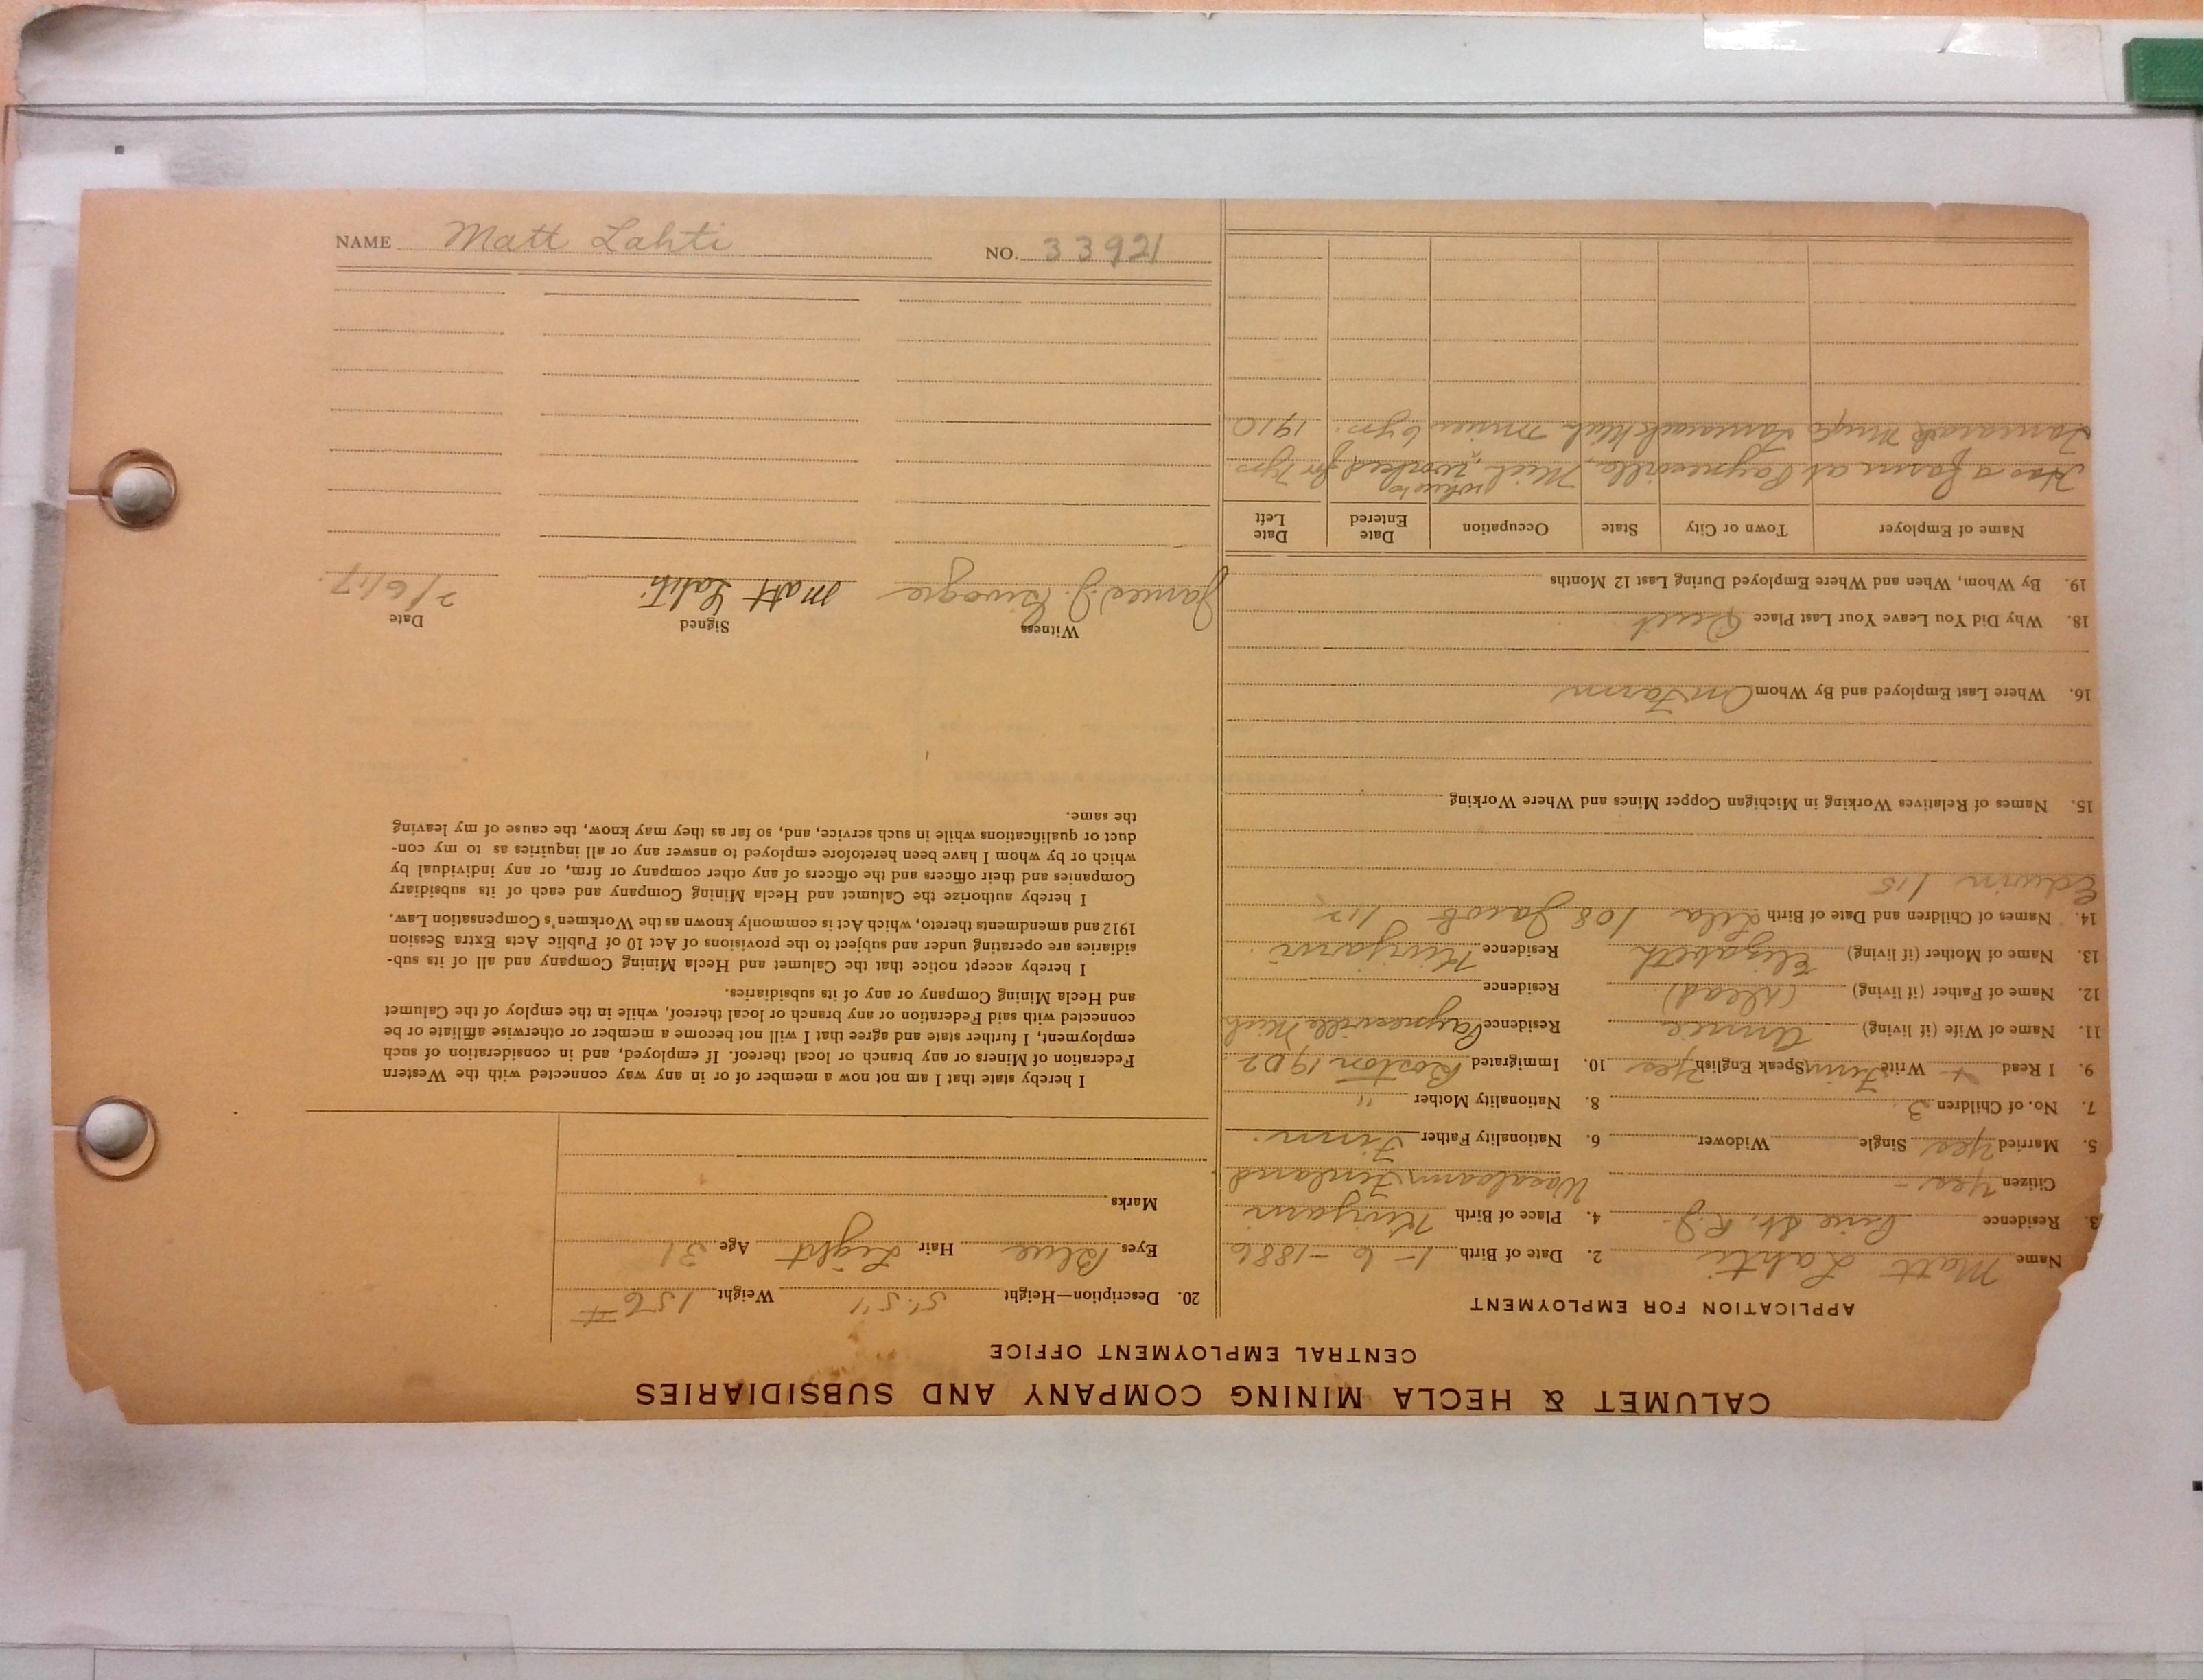 CALUMET & HECLA MINING COMPANY AND SUBSIDIARIES
CENTRAL EMPLOYMENT OFFICE
APPLICATION FOR EMPLOYMENT
Name Matt Lahti 2. Date of Birth 1-6-1886
3. Residence Pine St. R.J. 4. Place of Birth Kurjani
Citizen yes - Finland
5. Married yes Single Widower 6. Nationality Father Finn.
7. No. of Children 3. 8. Nationality Mother "
9. I Read + Write Finn Speak English yes 10. Immigrated Boston 1902
11. Name of Wife (if living) Annie Residence Paynesville Mich
12. Name of Father (if living) (dead) Residence
13. Name of Mother (if living) Elizabeth Residence Kurjani.
14. Names of Children and Date of Birth Lila /08 Jacob /12
Edwin /15
15. Names of Relatives Working in Michigan Copper Mines and Where Working
16. Where Last Employed and By Whom On Farm
18. Why Did You Leave Your Last Place Quit
19. By Whom, When and Where Employed During Last 12 Months
Name of Employer Town or City State Occupation Date Entered Date Left
Has a farm at Paynesville, Mich, where he worked for 7 yrs.
Tamarack Mng Co Tamarack Mich miner 6 yrs. 1910
20. Description—Height 5' 5" Weight 156 #
Eyes Blue Hair Light Age 31
Marks
I hereby state that I am not now a member of or in any way connected with the Western
Federation of Miners or any branch or local thereof. If employed, and in consideration of such
employment, I further state and agree that I will not become a member or otherwise affiliate or be
connected with said Federation or any branch or local thereof, while in the employ of the Calumet
and Hecla Mining Company or any of its subsidiaries.
I hereby accept notice that the Calumet and Hecla Mining Company and all of its sub-
sidiaries are operating under and subject to the provisions of Act 10 of Public Acts Extra Session
1912 and amendments thereto, which Act is commonly known as the Workmen's Compensation Law.
I hereby authorize the Calumet and Hecla Mining Company and each of its subsidiary
Companies and their officers and the officers of any other company or firm, or any individual by
which or by whom I have been heretofore employed to answer any or all inquiries as to my con-
duct or qualifications while in such service, and, so far as they may know, the cause of my leaving
the same.
Witness Signed Date
James J. Matt Lahti 2/6/17.
NAME Matt Lahti NO. 33921